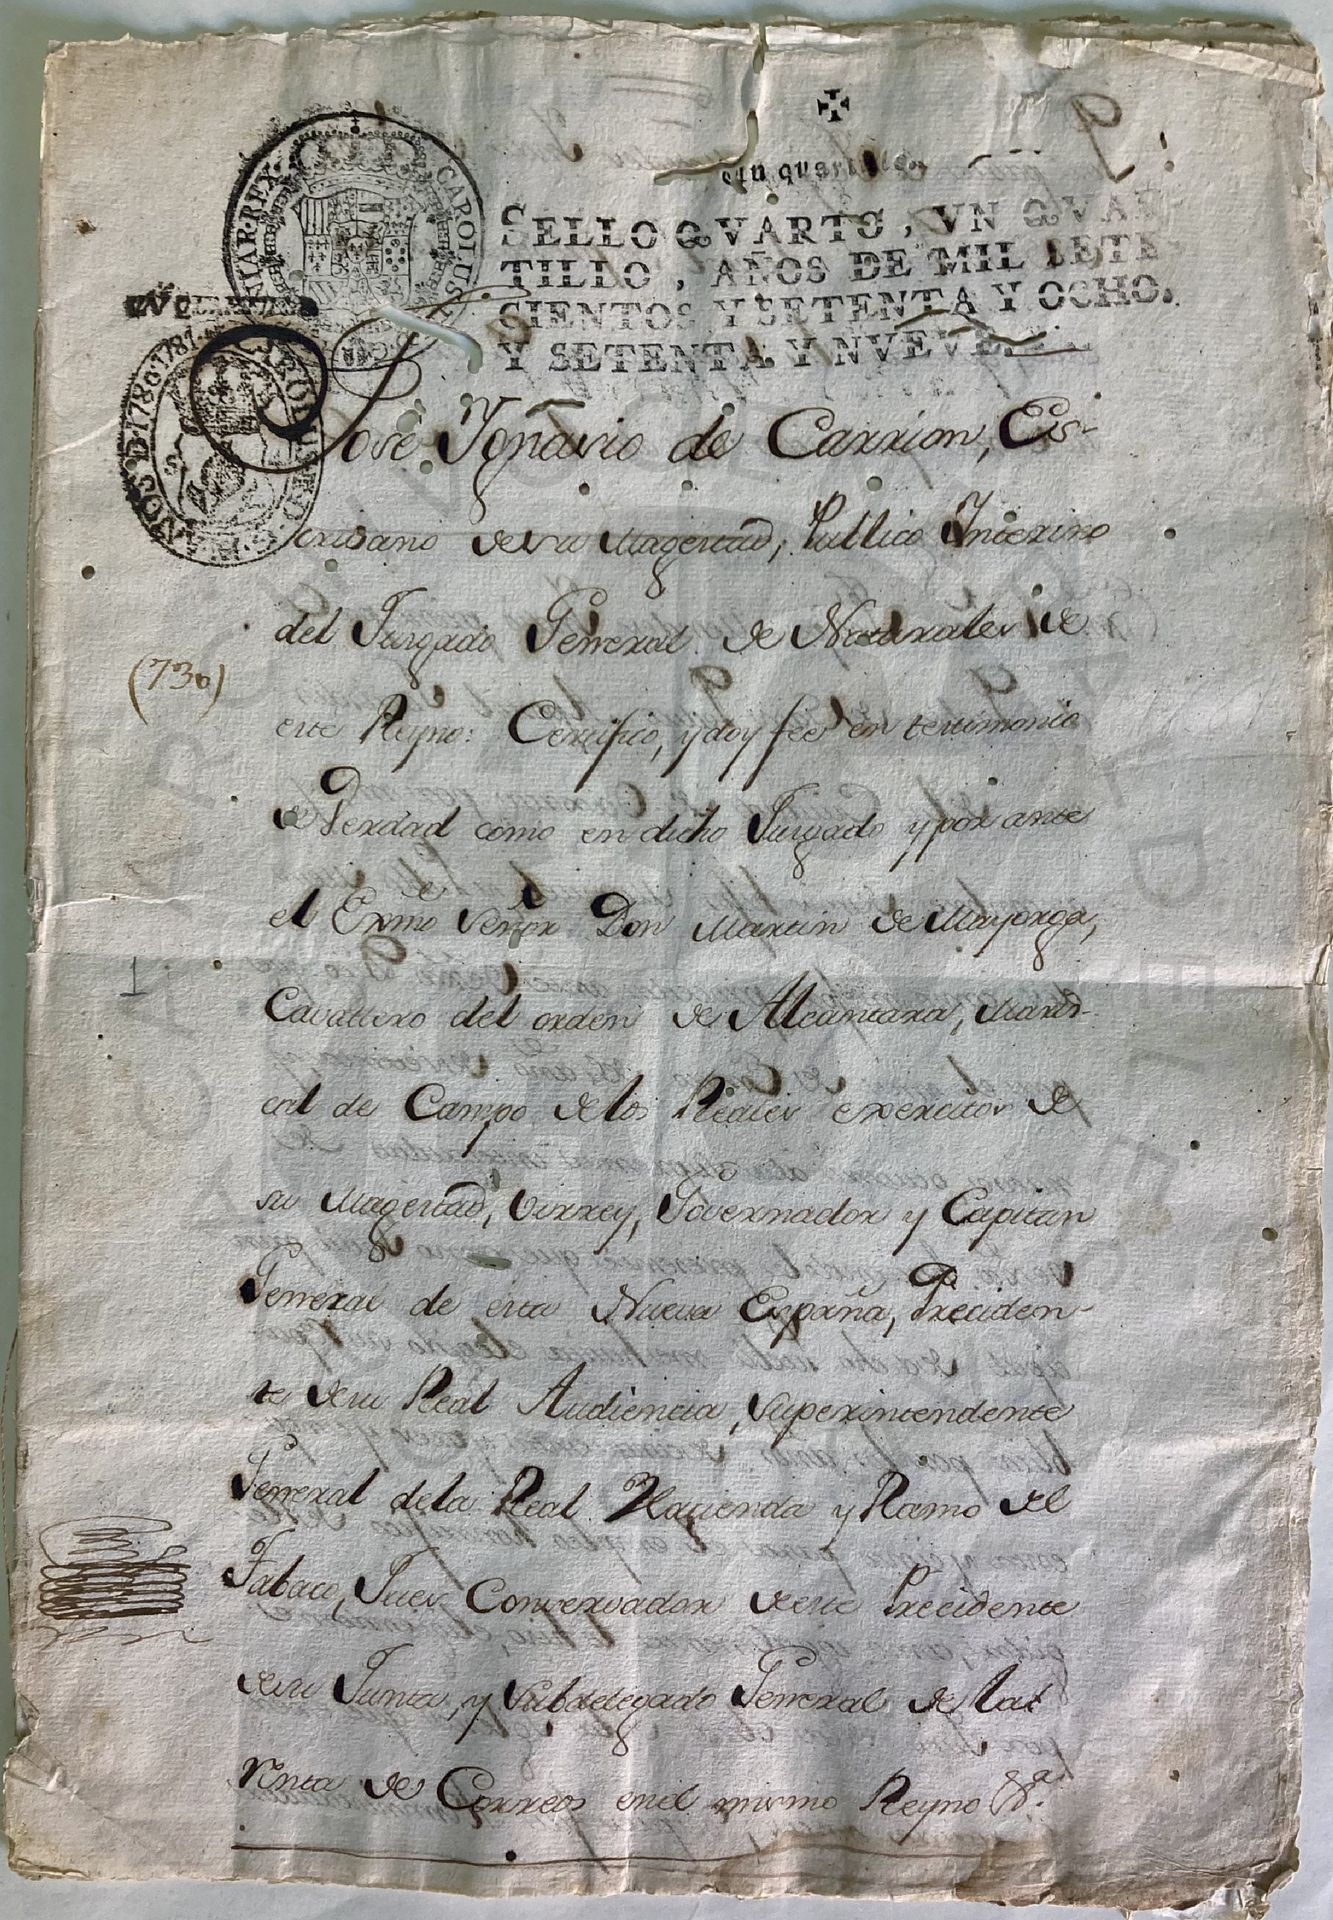 Un quartillo.
SELLO QVARTO, VN QVAR-
TILLO, AÑOS DE MIL SETE
CIENTOS Y SETENTA Y OCHO,
Y SETENTA Y NVEVE.
CAROLUS
IND. REX
AÑOS D 1780. 1781.
Jose Ygnasio de Carrion, Es-
cribano de su Magestad, Publico Interino
del Jusgado General de Naturales de
este Reyno: Certifico, y doy fee en testimonio
de Verdad como en dicho Jusgado y por ante
el Exmo Señor Don Martin de Mayorga,
Cavallero del orden de Alcantara, Maris-
cal de Campo de los Reales exercitos de
su Magestad, Virrey, Governador y Capitan
General de esta Nueva España, Preciden-
te de su Real Audiencia, Superintendente
General de la Real Hacienda y Ramo del
Tabaco, Jues Conservador de este Precidente
de su Junta, y Subdelegado General de la
renta de Correos en el mismo Reyno &a.
(730)
1